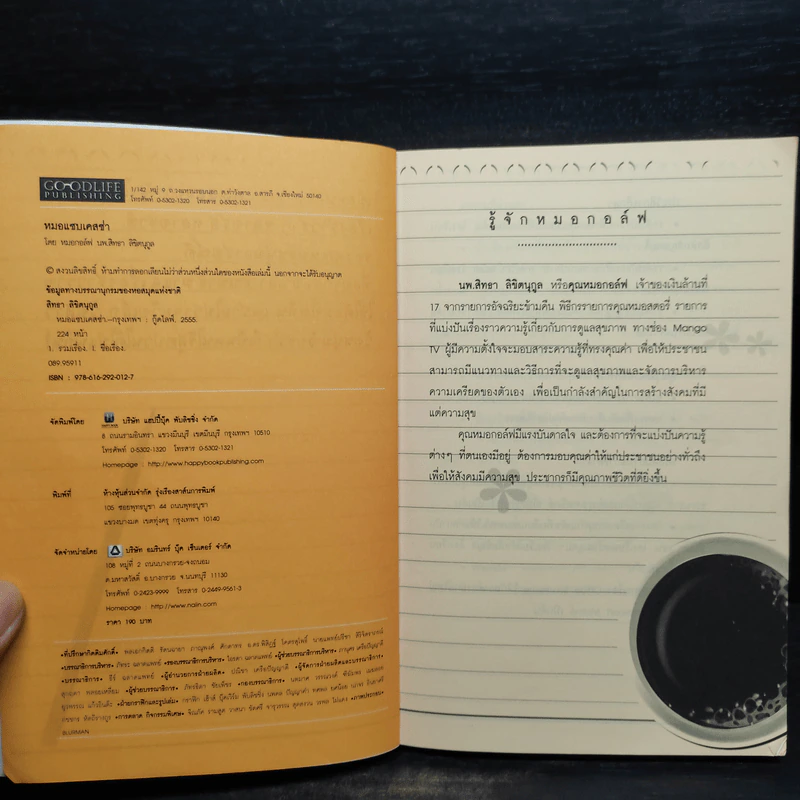 GOODLIFE
PUBLISHING
1/142 หมู่ 9 ถ.วงแหวนรอบนอก ต.ท่าวังตาล อ.สารภี จ.เชียงใหม่ 50140
โทรศัพท์ 0-5302-1320 โทรสาร 0-5302-1321
หมอแซบเคสซ่า
โดย หมอกอล์ฟ นพ.สิทธา ลิขิตนุกูล
© สงวนลิขสิทธิ์. ห้ามทำการลอกเลียนไม่ว่าส่วนหนึ่งส่วนใดของหนังสือเล่มนี้ นอกจากจะได้รับอนุญาต
ข้อมูลทางบรรณานุกรมของหอสมุดแห่งชาติ
สิทธา ลิขิตนุกูล
หมอแซบเคสซ่า.--กรุงเทพฯ : กู๊ดไลฟ์. 2555.
224 หน้า
1. รวมเรื่อง. I. ชื่อเรื่อง.
089.95911
ISBN : 978-616-292-012-7
จัดพิมพ์โดย บริษัท แฮปปี้บุ๊ค พับลิชชิ่ง จำกัด
8 ถนนรามอินทรา แขวงมีนบุรี เขตมีนบุรี กรุงเทพฯ 10510
โทรศัพท์ 0-5302-1320 โทรสาร 0-5302-1321
Homepage : http://www.happybookpublishing.com
พิมพ์ที่ ห้างหุ้นส่วนจำกัด รุ่งเรืองสาส์นการพิมพ์
105 ซอยพุทธบูชา 44 ถนนพุทธบูชา
แขวงบางมด เขตทุ่งครุ กรุงเทพฯ 10140
จัดจำหน่ายโดย บริษัท อมรินทร์ บุ๊ค เซ็นเตอร์ จำกัด
108 หมู่ที่ 2 ถนนบางกรวย-จงถนอม
ต.มหาสวัสดิ์ อ.บางกรวย จ.นนทบุรี 11130
โทรศัพท์ 0-2423-9999 โทรสาร 0-2449-9561-3
Homepage http://www.naiin.com
ราคา 190 บาท
•ที่ปรึกษากิตติมศักดิ์•
•บรรณาธิการบริหาร• •รองบรรณาธิการบริหาร• •ผู้ช่วยบรรณาธิการบริหาร•
•บรรณาธิการ• •ผู้อำนวยการฝ่ายผลิต• •ผู้จัดการฝ่ายผลิตและบรรณาธิการ•
•ผู้ช่วยบรรณาธิการ• •กองบรรณาธิการ•
•ฝ่ายกราฟิกและรูปเล่ม•
•การตลาด กิจกรรมพิเศษ• •ภาพประกอบ•
BLURMAN
รู้จักหมอกอล์ฟ
นพ.สิทธา ลิขิตนุกูล หรือคุณหมอกอล์ฟ เจ้าของเงินล้านที่
17 จากรายการอัจฉริยะข้ามคืน พิธีกรรายการคุณหมอสตอรี่ รายการ
ที่แบ่งปันเรื่องราวความรู้เกี่ยวกับการดูแลสุขภาพ ทางช่อง Mango
TV ผู้มีความตั้งใจจะมอบสาระความรู้ที่ทรงคุณค่า เพื่อให้ประชาชน
สามารถมีแนวทางและวิธีการที่จะดูแลสุขภาพและจัดการบริหาร
ความเครียดของตัวเอง เพื่อเป็นกำลังสำคัญในการสร้างสังคมที่มี
แต่ความสุข
คุณหมอกอล์ฟมีแรงบันดาลใจ และต้องการที่จะแบ่งปันความรู้
ต่างๆ ที่ตนเองมีอยู่ ต้องการมอบคุณค่าให้แก่ประชาชนอย่างทั่วถึง
เพื่อให้สังคมมีความสุข ประชากรก็มีคุณภาพชีวิตที่ดียิ่งขึ้น